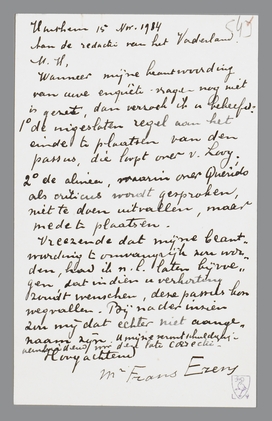 Houthem 15 Nov. 1934
Aan de redactie van het Vaderland
M. H,
Wanneer mijne beantwoording
van uwe enquête-vragen nog niet
is gezet, dan verzoek ik u beleefd:
1º de ingesloten regel aan het
einde te plaatsen van den
passus, die loopt over v. Looy.
2º de alinea, waarin over Querido
als criticus wordt gesproken,
niet te doen uitvallen, maar
mede te plaatsen.
Vreezende dat mijne beant-
woording te omvangrijk zou wor-
den, had ik n.l. laten bijvoe-
gen, dat indien u verkorting
zoudt wenschen, deze passus kon
wegvallen. Bij nader inzien
zou mij dat echter niet aange-
naam zijn. U mijne verontschuldiging
aanbiedend voor deze late correctie
Hoogachtend
Mr Frans Erens